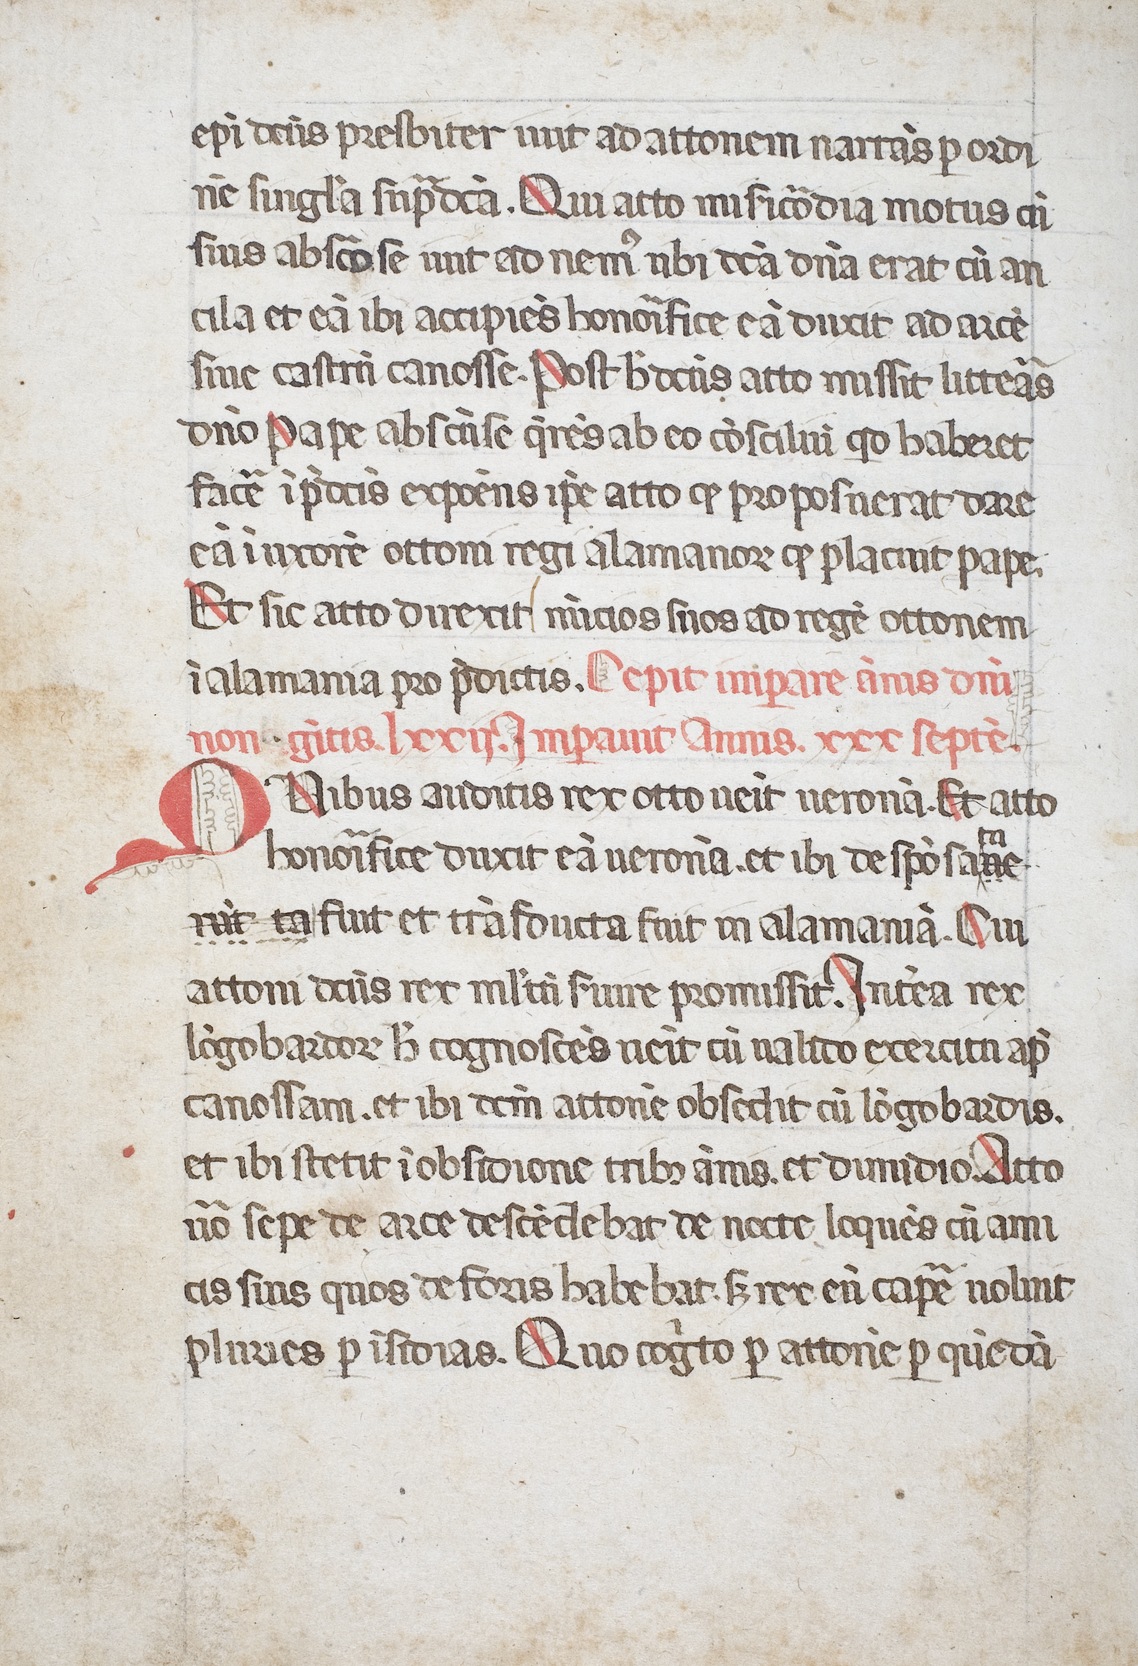 epi dcūs presbiter iuit ad attonem narrās ꝑ ordi
nē singl'a sup̄dcā. Qui atto misicōdia motus cū
suis abscōse iuit ad nemꝰ ubi dcā dn̄a erat cū an
cila et eā ibi accipiēs honoīfice eā duxit ad arcē
siue castrū canosse. Post h̄ dcūs atto missit litteās
dn̄o pape abscūse q̄rēs ab eo cōsciliuī qd haberet
facē ī p̄dcīs expoēns ip̄e atto ꝙ proposuerat dare
eā ī uxorē ottoni regi alamanoꝝ ꝙ placuit pape.
Et sic atto direxit nūcios suos ad regē ottonem
ī alamania pro p̄dictis. Cepit imꝑare ānis dn̄i
non gītis. lxxij. Imꝑauit Annis. xxx septē.
QNibus auditis rex otto ueīt ueronā. Et atto
honoīfice duxit eā ueronā. et ibi despōsata
fuit et trāsducta fuit in alamaniā. Cui
attoni dcūs rex ml'tū suire promissit. Intēa rex
lōgobardoꝝ h̄ cognoscēs ueīt cū ualido exercitu ap̄
canossam. et ibi dcm̄ attonē obsedit cū lōgobardis.
et ibi stetit ī obsidione tribꝫ ānis. et dimidio. Atto
ūo sepe de arce descēdebat de nocte loquēs cū ami
cis suis quos de foris habebat. sꝫ rex eū capē uoluit
pluries ꝑ īsidias. Quo coḡto ꝑ attonē ꝑ quēdā